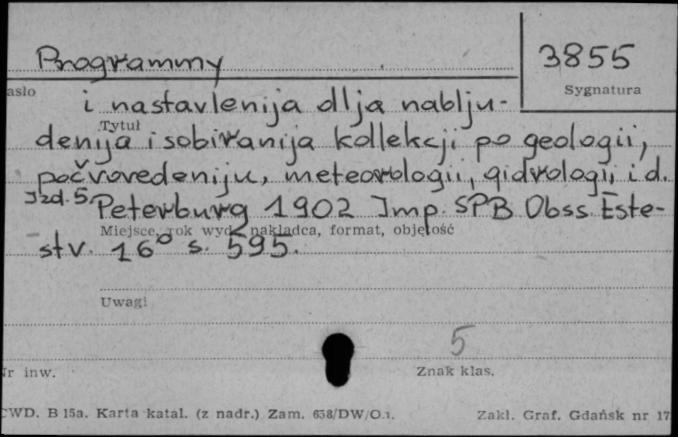 Programmy
3855
asło
Sygnatura
i nastavlenija dlja nablju-
Tytuł
denija i sobiranija kollekcji po geologii,
počvovedeniju, meteorologii, gidrologii i d.
Izd. 5. Peterburg 1902 Imp. SPB Obss. Este-
Miejsce, rok wyd. nakładca, format, objętość
stv. 16° s. 595.
Uwagi
5
Nr inw.
Znak klas.
CWD. B 15a. Karta katal. (z nadr.) Zam. 658/DW/O.1.
Zakł. Graf. Gdańsk nr 17